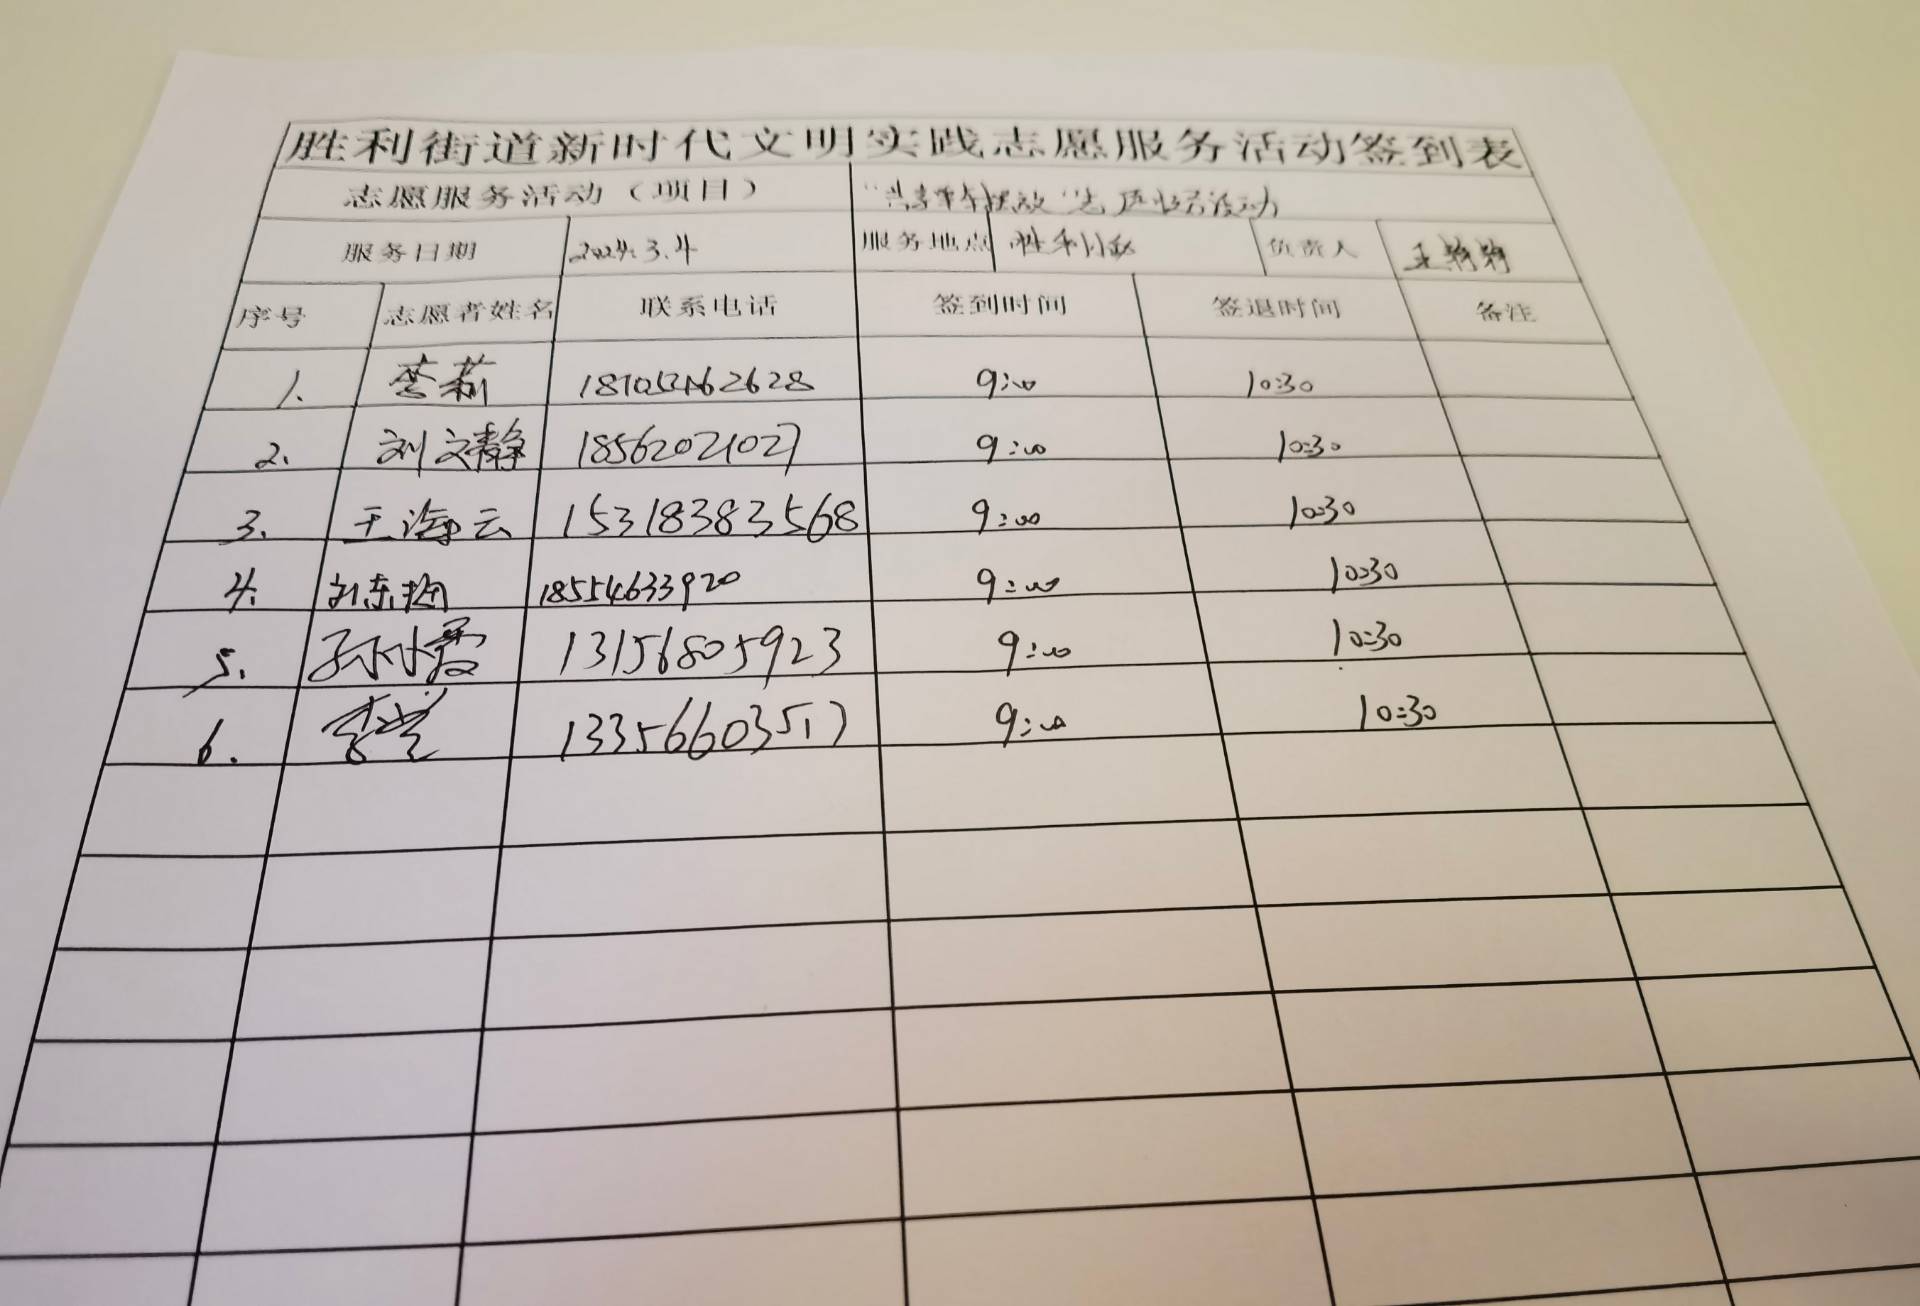 胜利街道新时代文明实践志愿服务活动签到表
志愿服务活动（项目） "共享单车摆放"志愿服务活动
服务日期 2024.3.4 服务地点 胜利 负责人 王
序号 志愿者姓名 联系电话 签到时间 签退时间 备注
1. 李莉 9:00 10:30
2. 刘文静 18562021027 9:00 10:30
3. 王海云 15318383568 9:00 10:30
4. 18554633920 9:00 10:30
5. 孙小霞 13156805923 9:00 10:30
6. 13356603517 9:00 10:30